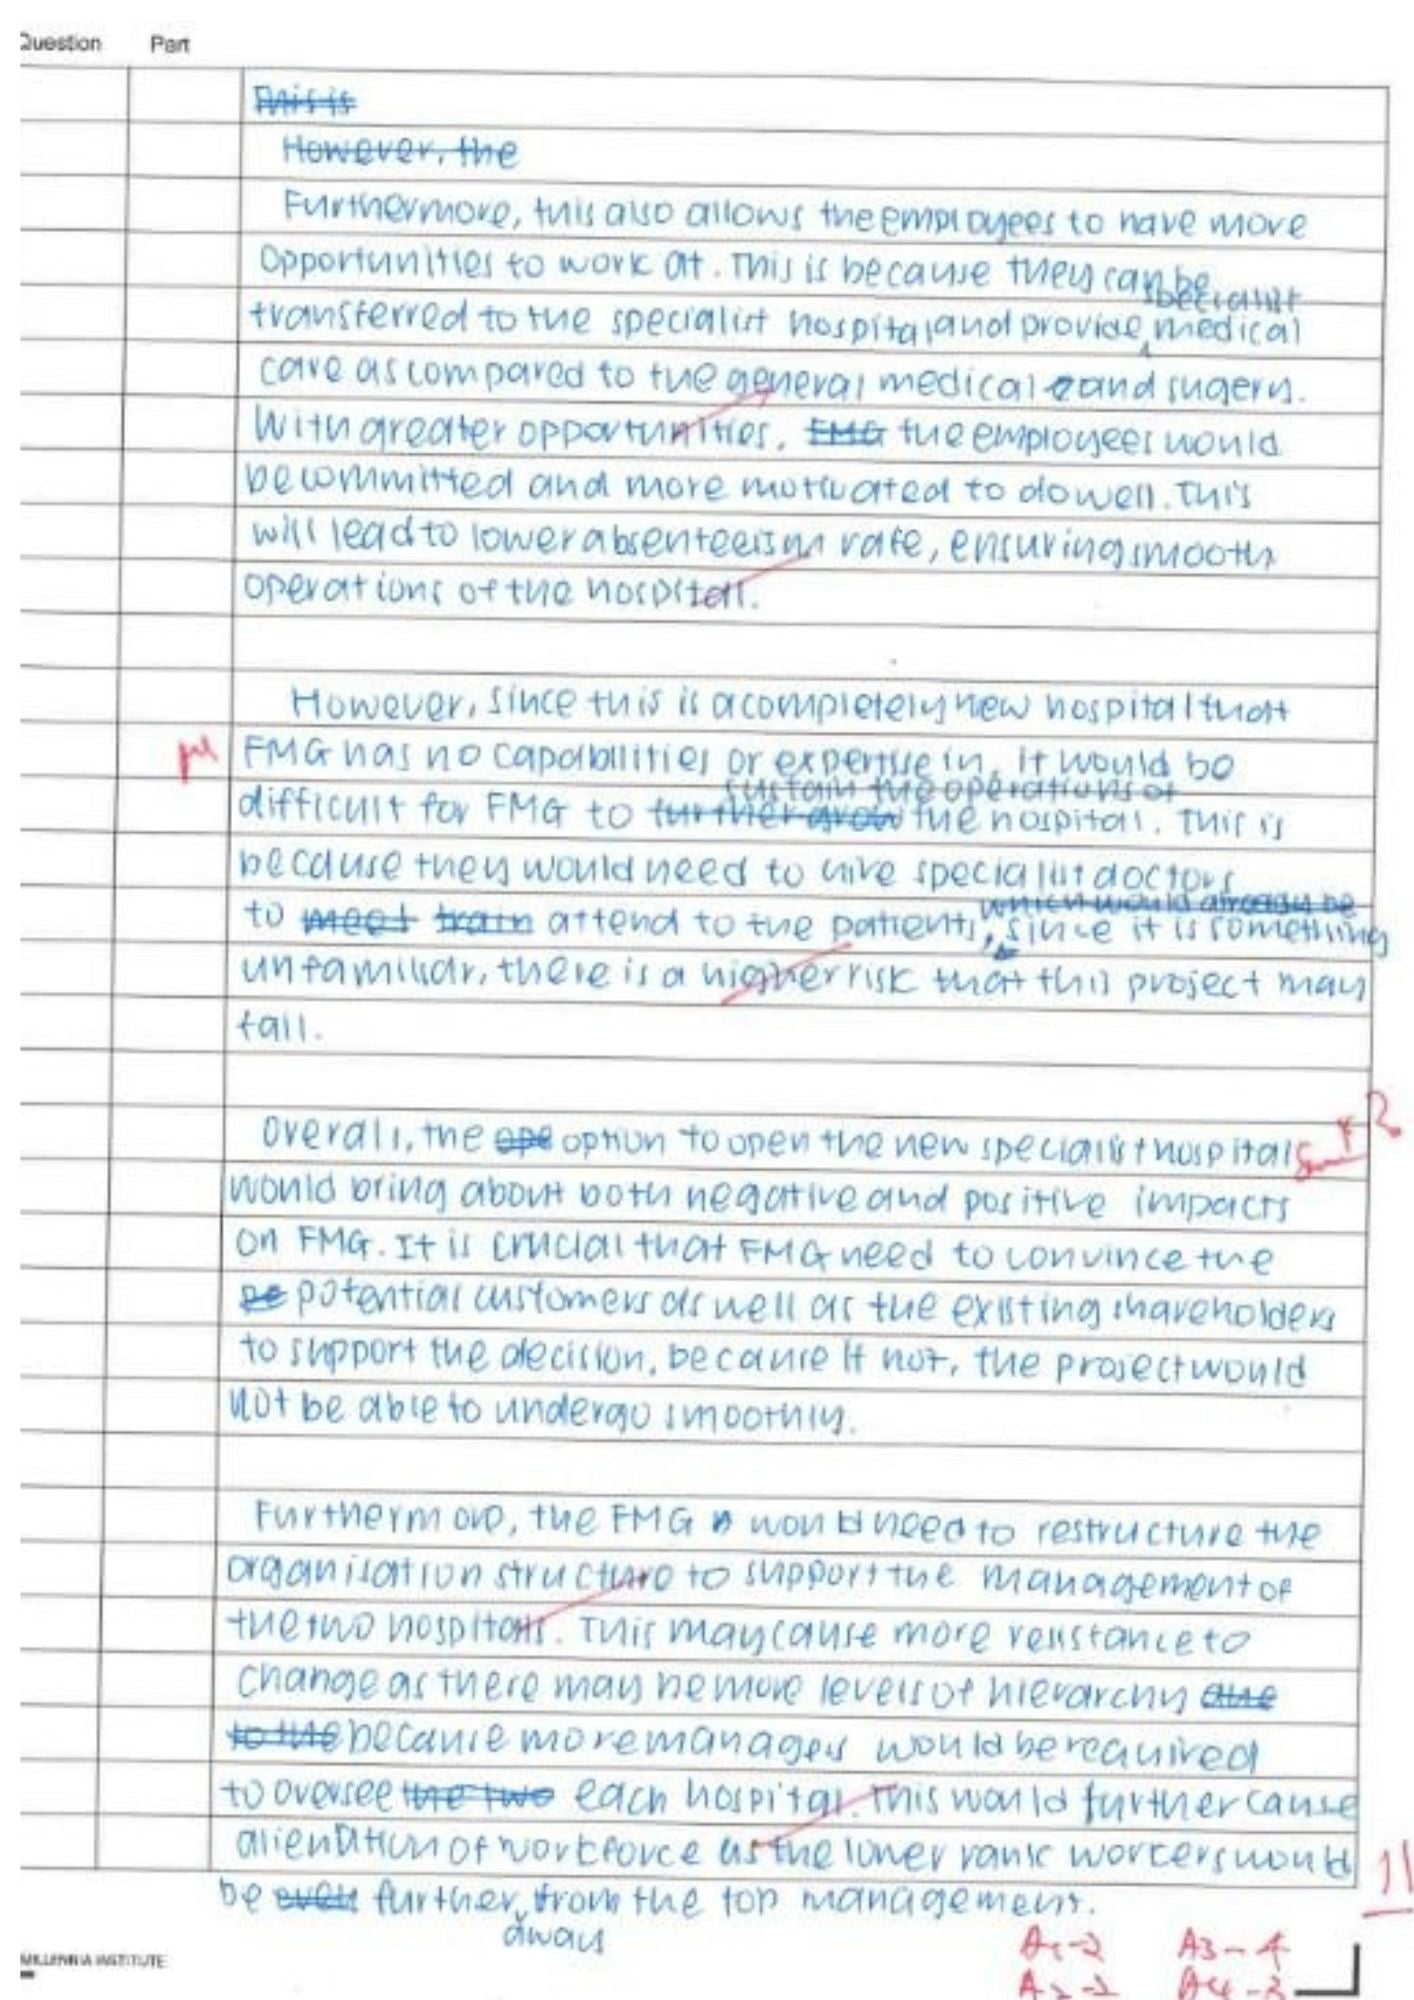 Question Part
This is
However, the
Furthermore, this also allows the employees to have more
opportunities to work at. This is because they can be
specialist
transferred to the specialist hospital and provide medical
care as compared to the general medical and sugery.
With greater opportunities, FMG the employees would
be committed and more motivated to do well. This
will lead to lower absenteeism rate, ensuring smooth
operations of the hospital.
However, since this is a completely new hospital that
FMG has no capabilities or expertise in, it would be
sustain the operations of
difficult for FMG to further grow the hospital. This is
because they would need to hire specialist doctors
which would already be
to meet train attend to the patients, since it is something
unfamiliar, there is a higher risk that this project may
fail.
Overall, the ope option to open the new specialist hospital
would bring about both negative and positive impacts
on FMG. It is crucial that FMG need to convince the
pe potential customers as well as the existing shareholders
to support the decision, because if not, the project would
not be able to undergo smoothly.
Furthermore, the FMG would need to restructure the
organisation structure to support the management of
the two hospitals. This may cause more resistance to
change as there may be more levels of hierarchy due
to the because more managers would be required
to oversee the two each hospital. This would further cause
alienation of workforce as the lower rank workers would
11
be even further from the top management.
away
MILLENNIA INSTITUTE
A1-2 A3-4
A2-2 A4-3